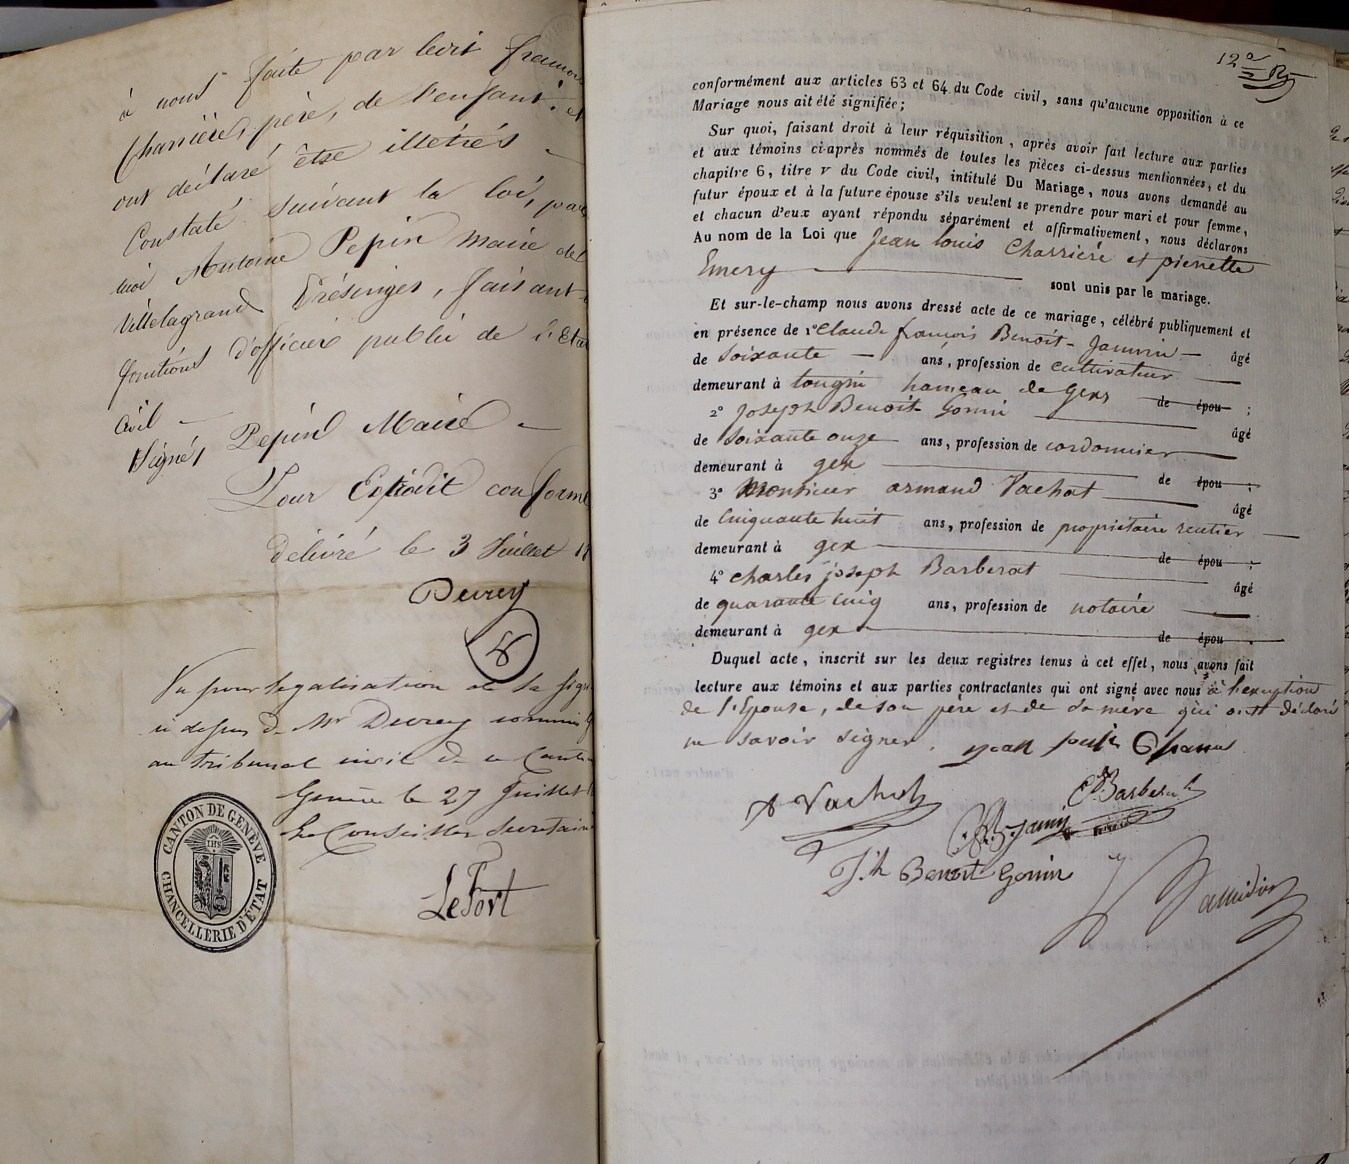 à nous faite par ledit françois
Charrière, père, de l'enfant. et
ont déclaré être illetrés
Constaté suivant la loi, par
moi Antoine Pepin Maire de
Villelagrand Présinges, faisant
fonctions d'officier public de l'Etat
Civil
Signé, Pepin Maire
Pour Extrait conforme
Délivré le 3 Juillet 18
Duvrey
Vu pour légalisation de la sign
ci dessus de Mr Duvrey commis
au tribunal civil de ce Canton
Genève le 27 Juillet
Le Conseiller Secrétaire
LeFort
CANTON DE GENÈVE
IHS
CHANCELLERIE D'ÉTAT
12e
conformément aux articles 63 et 64 du Code civil, sans qu'aucune opposition à ce
Mariage nous ait été signifiée;
Sur quoi, faisant droit à leur réquisition, après avoir fait lecture aux parties
et aux témoins ci-après nommés de toutes les pièces ci-dessus mentionnées, et du
chapitre 6, titre v du Code civil, intitulé Du Mariage, nous avons demandé au
futur époux et à la future épouse s'ils veulent se prendre pour mari et pour femme,
et chacun d'eux ayant répondu séparément et affirmativement, nous déclarons
Au nom de la Loi que Jean louis Charrière et pierrette
Emery sont unis par le mariage.
Et sur-le-champ nous avons dressé acte de ce mariage, célébré publiquement et
en présence de 1° Claude françois Benoît-Janvin âgé
de soixante ans, profession de cultivateur
demeurant à tougin hameau de Gex de épou ;
2° Joseph Benoît Gonin âgé
de soixante onze ans, profession de cordonnier
demeurant à gex de épou ;
3° Monsieur armand Vachat âgé
de cinquante huit ans, profession de propriétaire rentier
demeurant à gex de épou ;
4° charles joseph Barberat âgé
de quarante cinq ans, profession de notaire
demeurant à gex de épou .
Duquel acte, inscrit sur les deux registres tenus à cet effet, nous avons fait
lecture aux témoins et aux parties contractantes qui ont signé avec nous à l'exception
de l'Epouse, de son père et de sa mère qui ont déclaré
ne savoir signer. jean louis Charrier
A Vachat
Barberat
Janvin
J.h Benoit Gonin